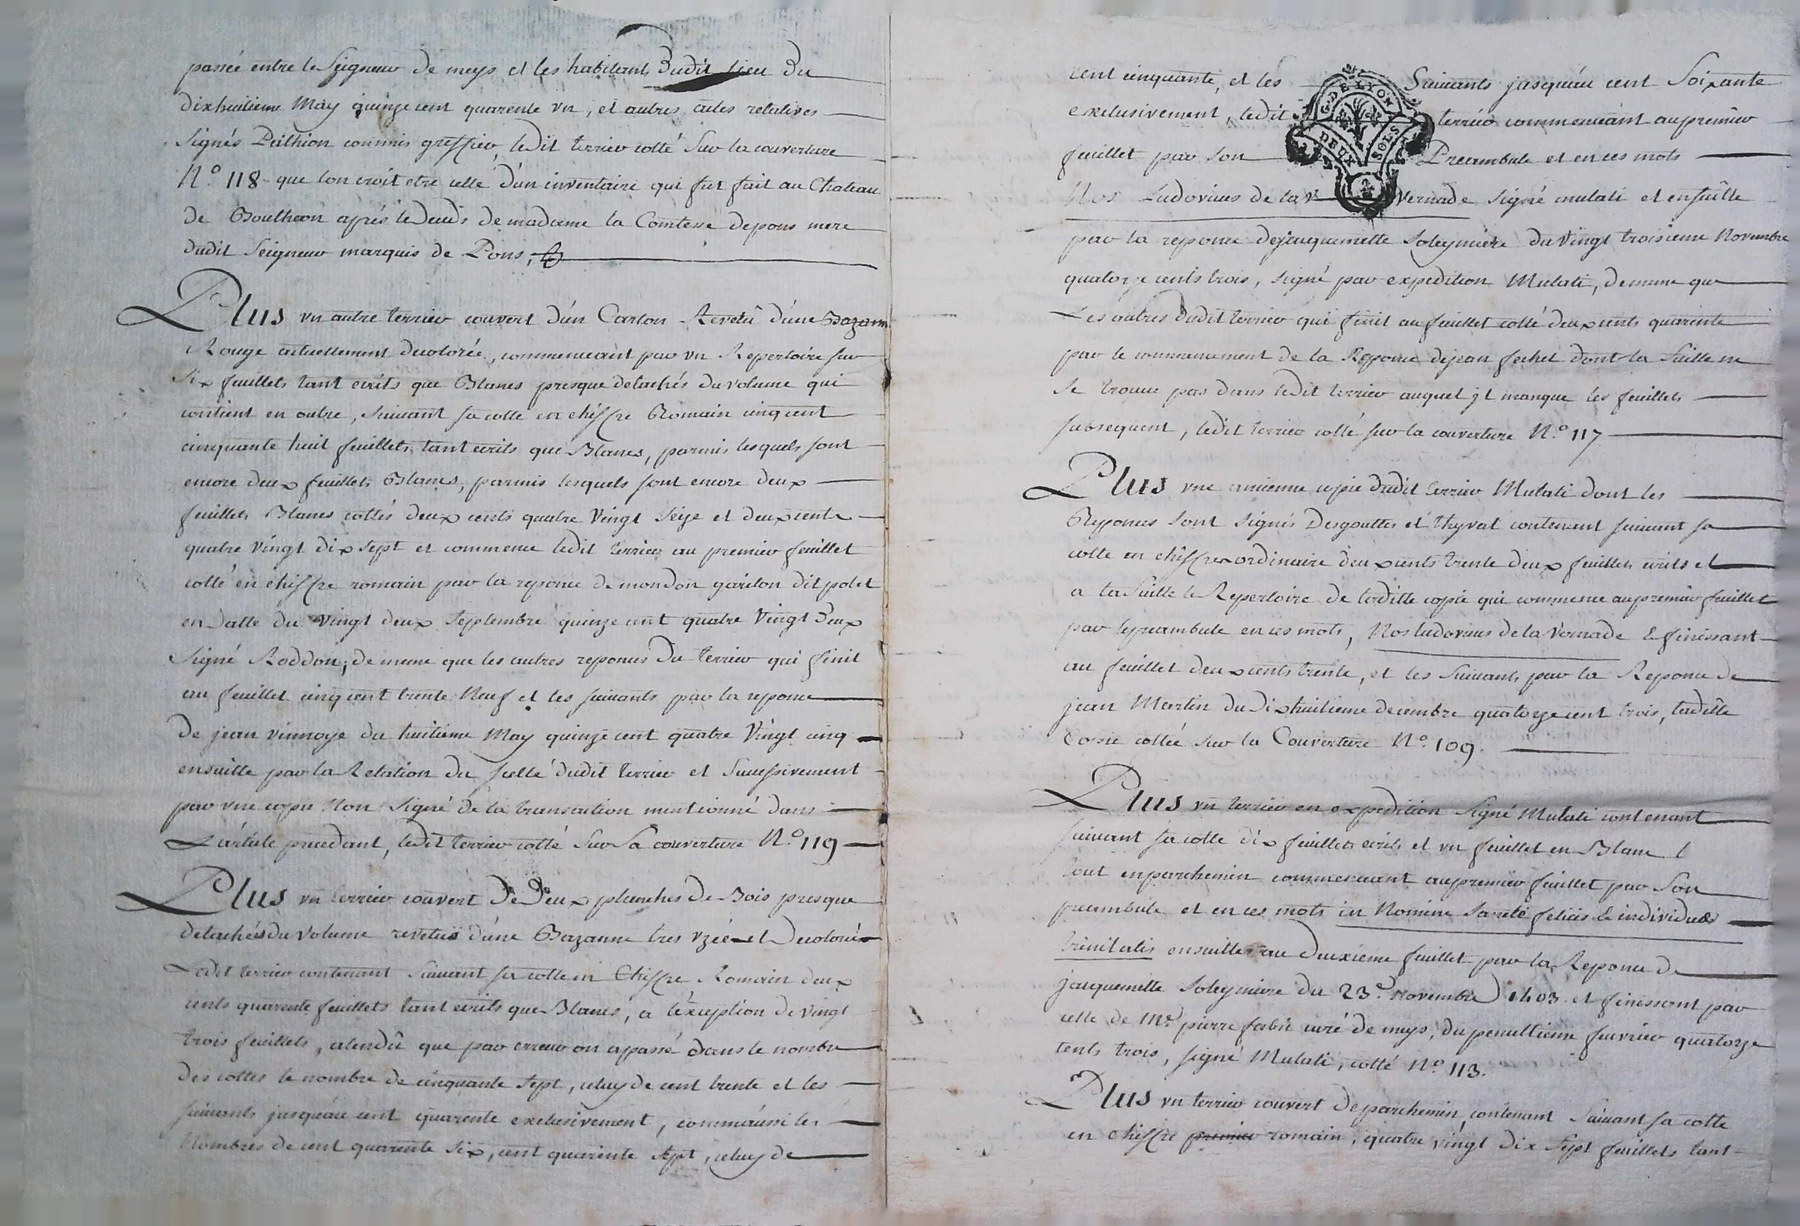 passée entre le Seigneur de meys et les habitants dudit lieu du
dixhuitieme May quinze cent quarente un, et autres actes relatives
Signés Péthion commis greffier, ledit terrier cotté Sur la couverture
N.° 118 que lon croit etre celle d'un inventaire qui fut fait au Chateau
de Boutheon après le deces de madame la Comtesse depons mere
dudit Seigneur marquis de Pons,
Plus un autre terrier couvert d'un Carton Revetû d'une Bazanne
Rouge actuellement decolorée, commencant par un Repertoire sur
Six feuillets tant ecrits que Blancs presque detachés du volume qui
contient en outre, suivant sa cotte en chiffre Romain cinq cent
cinquante huit feuillets tant ecrits que Blancs, parmis lesquels sont
encore deux feuillets Blancs, parmis lesquels sont encore deux
feuillets Blancs cottés deux cents quatre Vingt Seize et deux cents
quatre vingt dix sept et commence ledit terrier au premier feuillet
cotté en chiffre romain par la reponce de mondon garilon dit polet
en datte du Vingt deux Septembre quinze cent quatre Vingt deux
Signé Roddon, de meme que les autres reponces du terrier qui finit
au feuillet cinq cent trente Neuf et les suivants par la reponce
De jean vinnoye du huitieme May quinze cent quatre Vingt cinq
ensuitte par la Relation du scellé dudit terrier et Successivement
par une copie Non Signé de la transaction mentionné dans
L'article precedant, ledit terrier cotté Sur Sa couverture N.° 119
Plus un terrier couvert De Deux planches de Bois presque
detachés du Volume revetües d'une Bazanne tres uzée et Decolorée
Ledit terrier contenant Suivant sa cotte en Chiffre Romain deux
cents quarente feuillets tant ecrits que Blancs, a l'exception de vingt
trois feuillets, atendû que par erreur on a passé dans le nombre
des cottes le nombre de cinquante Sept, celuy de cent trente et les
suivants jusqu'au cent quarente exclusivement, comm'aussi les
Nombres de cent quarente Six, cent quarente Sept, celuy de
cent cinquante, et les Suivants jusqu'au cent Soixante
exclusivement, ledit terrier commencant au premier
feuillet par Son Preambule et en ces mots
Nos Ludovicus de la v Vernade Signé mulati et ensuitte
par la reponce de jacquemette Soleymiere du Vingt troisieme Novembre
quatorze cents trois, Signé par expedition Mulati, de meme que
Les autres dudit terrier qui finit au feuillet cotté deux cents quarente
par le commencement de la Reponce de jean fechet dont la Suitte ne
Se trouve pas dans ledit terrier auquel jl manque les feuillets
subsequent, ledit terrier cotté sur la couverture N.° 117
Plus une ancienne copie dudit terrier Mulati dont les
Reponces sont Signés Desgouttes et thyvat contenant suivant sa
cotte en chiffre ordinaire deux cents trente deux feuillets ecrits et
a la Suitte le Repertoire de laditte copie qui commence au premier feuillet
par le preambule en ces mots, Nos ludovicus de la Vernade & finissant
au feuillet deux cents trente, et les Suivants par la Reponce de
jean Martin du dixhuitieme decembre quatorze cent trois, laditte
Copie cottée Sur la Couverture N.° 109.
Plus un terrier en expedition Signé Mulati contenant
suivant sa cotte dix feuillets ecrits et un feuillet en Blanc
tout en parchemin commencant au premier feuillet par Son
preambule et en ces mots in Nomine Sancte felicis & individue
trinitatis ensuitte au deuxieme feuillet par la Reponce de
jacquemette Soleymiere du 23.e Novembre 1403 et finissant par
celle de M.re pierre fabri curé de meys, du penultieme fevrier quatorze
cents trois, signé Mulati, cotté N.° 113.
Plus un terrier couvert de parchemin, contenant Suivant sa cotte
en chiffre premier romain, quatre vingt dix Sept feuillets tant
G. DE LYON
DEUX SOLS